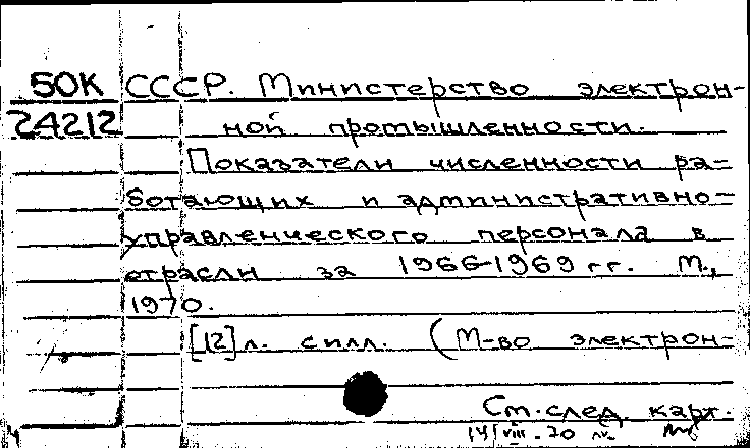 50К СССР. Министерство электрон-
24212 ной промышленности.
Показатели численности ра-
ботающих и административно-
управленческого персонала в
отрасли за 1966-1969 гг. М.,
1970.
[12] л. с илл. (М-во электрон-
См. след. карт.
14/VIII-70